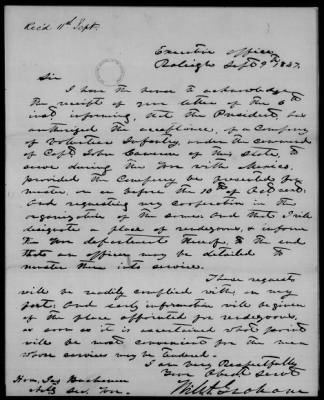 Recd 11th Sept.
Executive Office
Raleigh Sept 9th 1847.
Sir
I have the honor to acknowledge
the receipt of your letter of the 6th
inst informing, that the President, has
authorized the acceptance, of a Company
of Volunteer Infantry, under the command
of Capt. John of this State, to
serve during the War with Mexico,
provided the Company be presented for
muster, on or before the 10th of Oct next,
And requesting my cooperation in the
organization of the same. And that, I will
designate a place of rendezvous, & inform
the War department thereof, to the end
that an officer may be detailed to
muster them into service.
These requests
will be readily complied with, on my
part. And early information will be given
of the place appointed for rendezvous,
as soon as it is ascertained what point
will be most convenient for the men
whose services may be tendered.
I am very Respectfully
Your Obedt Servt
Will A. Graham
Hon. Jas Buchanan
Actg Sec. War.